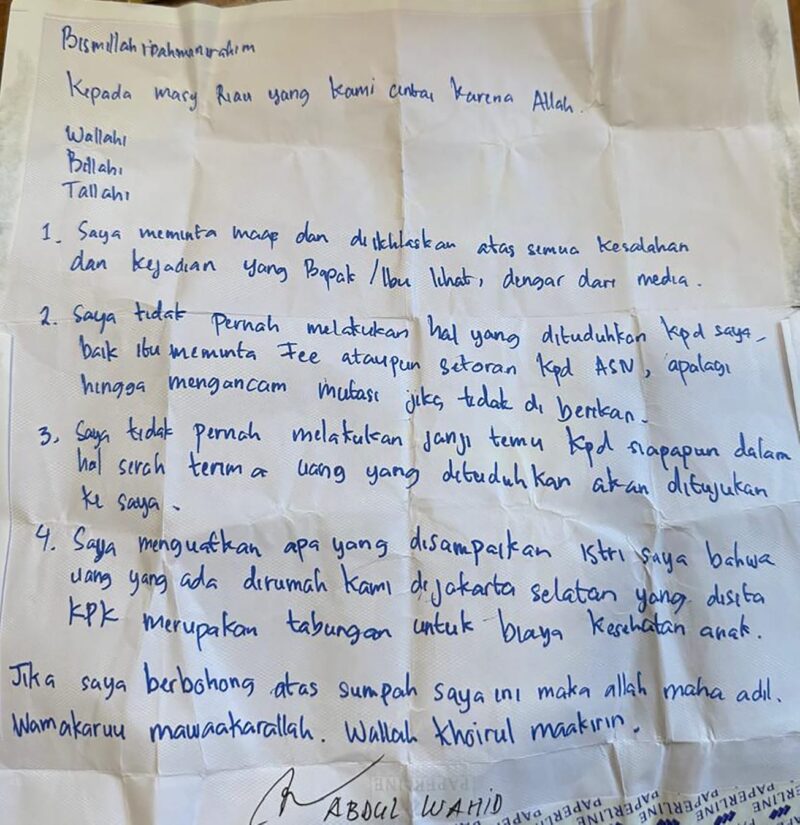 Bismillahirrahmanirrahim
Kepada masy Riau yang kami cintai karena Allah.
Wallahi
Billahi
Tallahi
1. Saya meminta maap dan diikhlaskan atas semua kesalahan
dan kejadian yang Bapak/Ibu lihat, dengar dari media.
2. Saya tidak pernah melakukan hal yang dituduhkan kpd saya,
baik itu meminta Fee ataupun setoran kpd ASN, apalagi
hingga mengancam mutasi jika tidak di berikan.
3. Saya tidak pernah melakukan janji temu kpd siapapun dalam
hal serah terima uang yang dituduhkan akan ditujukan
ke saya.
4. Saya menguatkan apa yang disampaikan istri saya bahwa
uang yang ada dirumah kami dijakarta selatan yang disita
KPK merupakan tabungan untuk biaya kesehatan anak.
Jika saya berbohong atas sumpah saya ini maka allah maha adil.
Wamakaruu mawaakarallah. Wallah khoirul maakirin.
ABDUL WAHID
PAPERLINE
PAPERLINE PAPERLINE PAPERLINE PAPERLINE